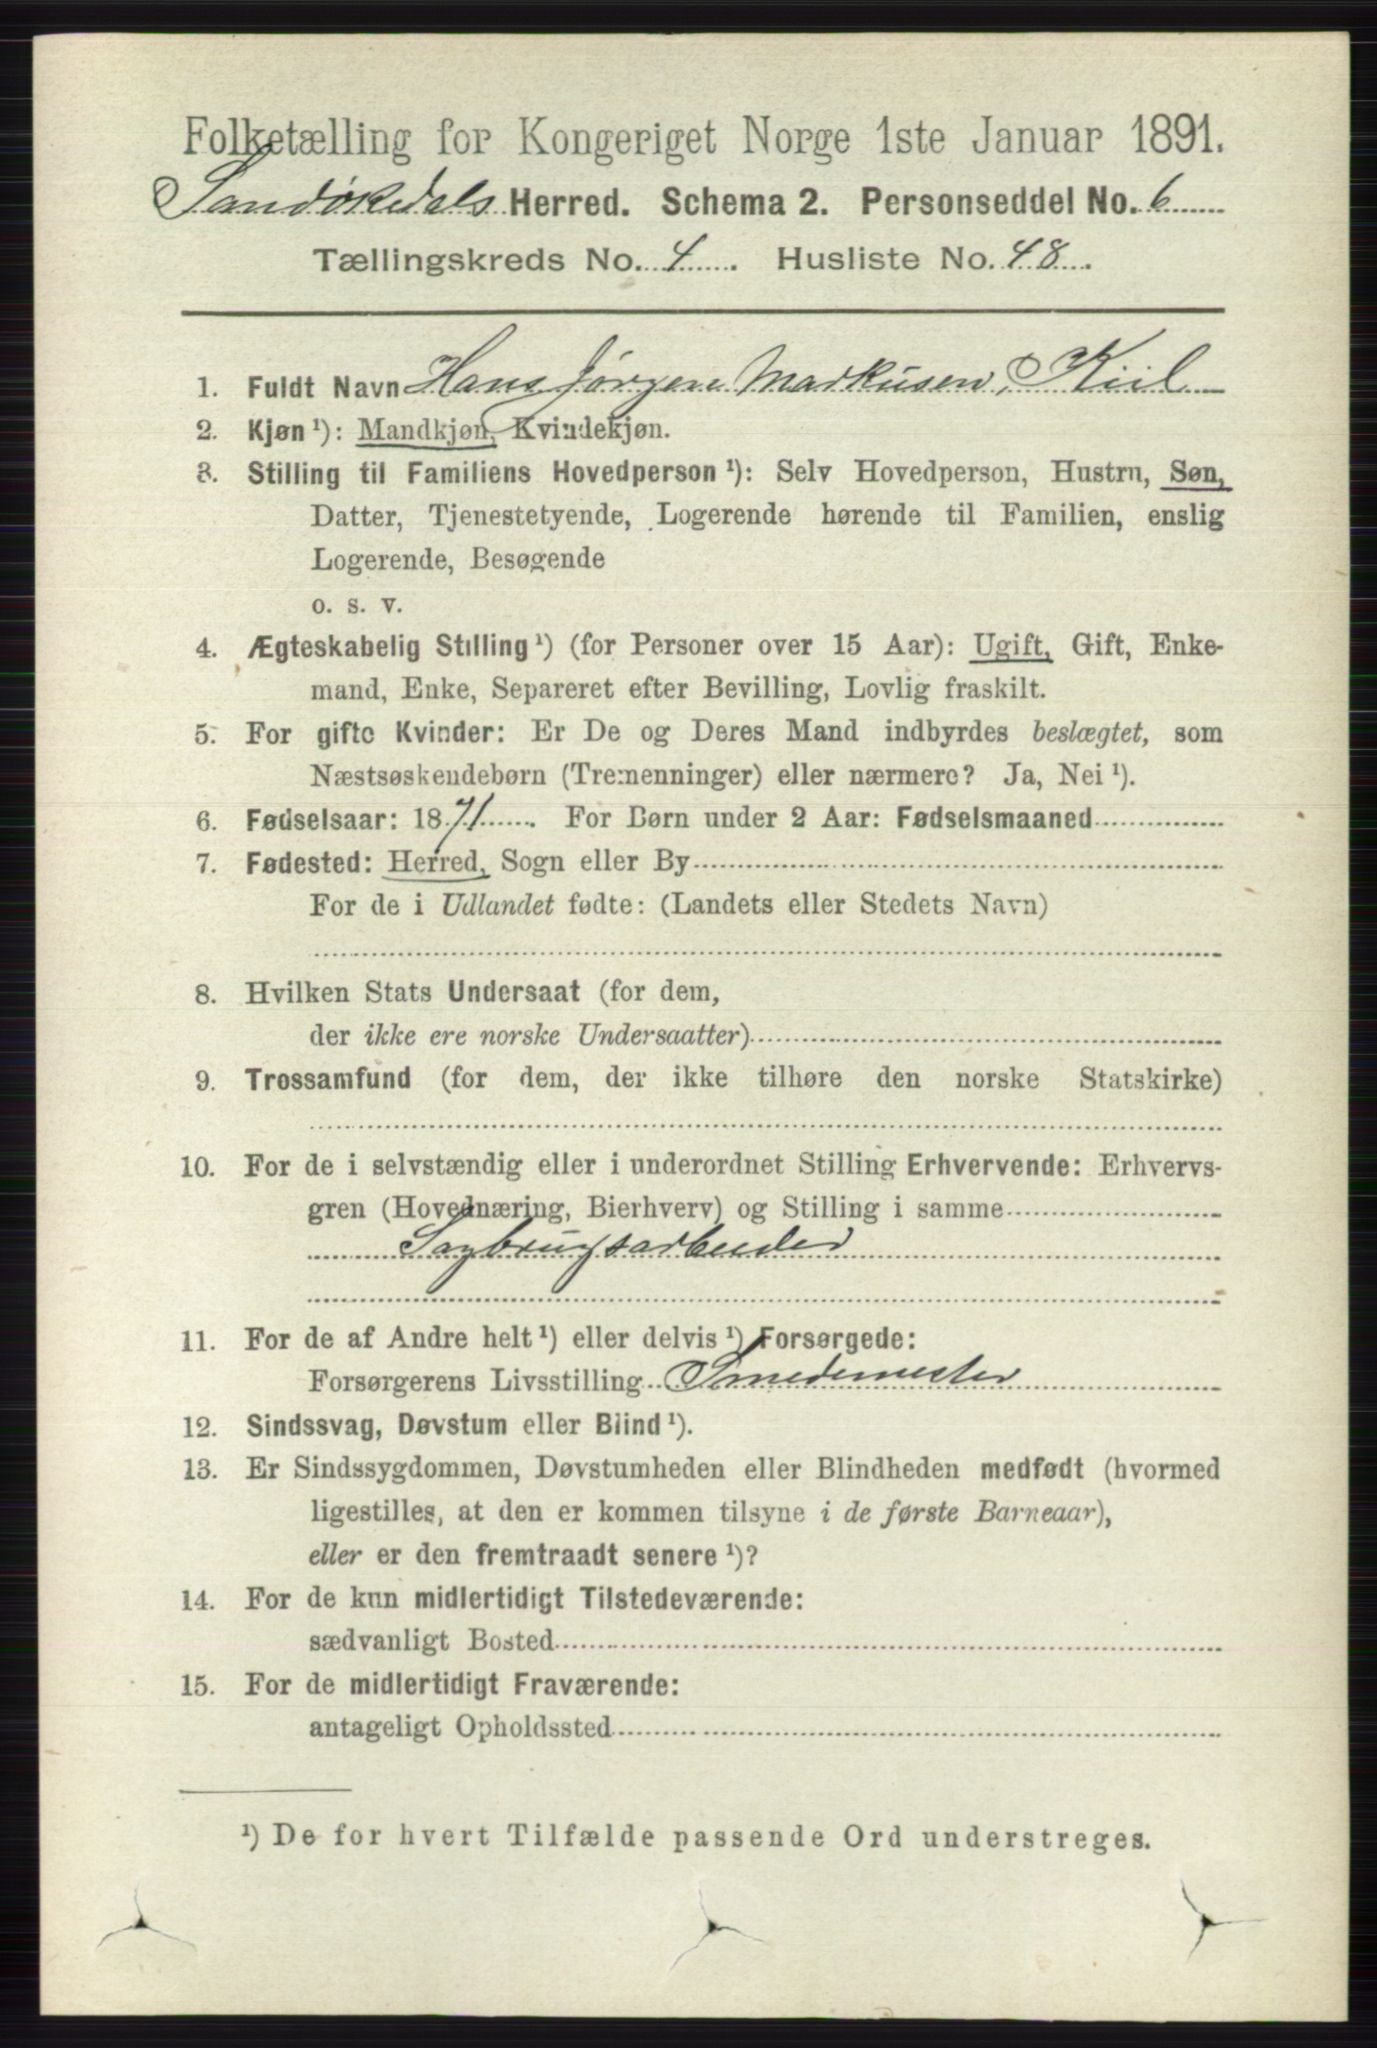 Folketælling for Kongeriget Norge 1ste Januar 1891.
Sandøkedals Herred. Schema 2. Personseddel No. 6
Tællingskreds No. 4. Husliste No. 48.
1. Fuldt Navn Hans Jørgen Markusen, Kiil
2. Kjøn ¹): Mandkjøn, Kvindekjøn.
3. Stilling til Familiens Hovedperson ¹): Selv Hovedperson, Hustru, Søn,
Datter, Tjenestetyende, Logerende hørende til Familien, enslig
Logerende, Besøgende
o. s. v.
4. Ægteskabelig Stilling ¹) (for Personer over 15 Aar): Ugift, Gift, Enke-
mand, Enke, Separeret efter Bevilling, Lovlig fraskilt.
5. For gifte Kvinder: Er De og Deres Mand indbyrdes beslægtet, som
Næstsøskendebørn (Tremenninger) eller nærmere? Ja, Nei ¹).
6. Fødselsaar: 1871. For Børn under 2 Aar: Fødselsmaaned
7. Fødested: Herred, Sogn eller By
For de i Udlandet fødte: (Landets eller Stedets Navn)
8. Hvilken Stats Undersaat (for dem,
der ikke ere norske Undersaatter)
9. Trossamfund (for dem, der ikke tilhøre den norske Statskirke)
10. For de i selvstændig eller i underordnet Stilling Erhvervende: Erhvervs-
gren (Hovednæring, Bierhverv) og Stilling i samme
Sagbrugsarbeider
11. For de af Andre helt ¹) eller delvis ¹) Forsørgede:
Forsørgerens Livsstilling Smedemester
12. Sindssvag, Døvstum eller Blind ¹).
13. Er Sindssygdommen, Døvstumheden eller Blindheden medfødt (hvormed
ligestilles, at den er kommen tilsyne i de første Barneaar),
eller er den fremtraadt senere ¹)?
14. For de kun midlertidigt Tilstedeværende:
sædvanligt Bosted
15. For de midlertidigt Fraværende:
antageligt Opholdssted
¹) De for hvert Tilfælde passende Ord understreges.